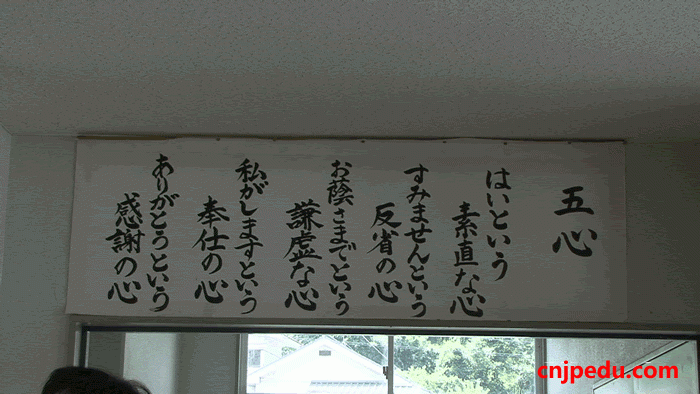 五心
はいという
素直な心
すみませんという
反省の心
お蔭さまでという
謙虚な心
私がしますという
奉仕の心
ありがとうという
感謝の心
cnjpedu.com